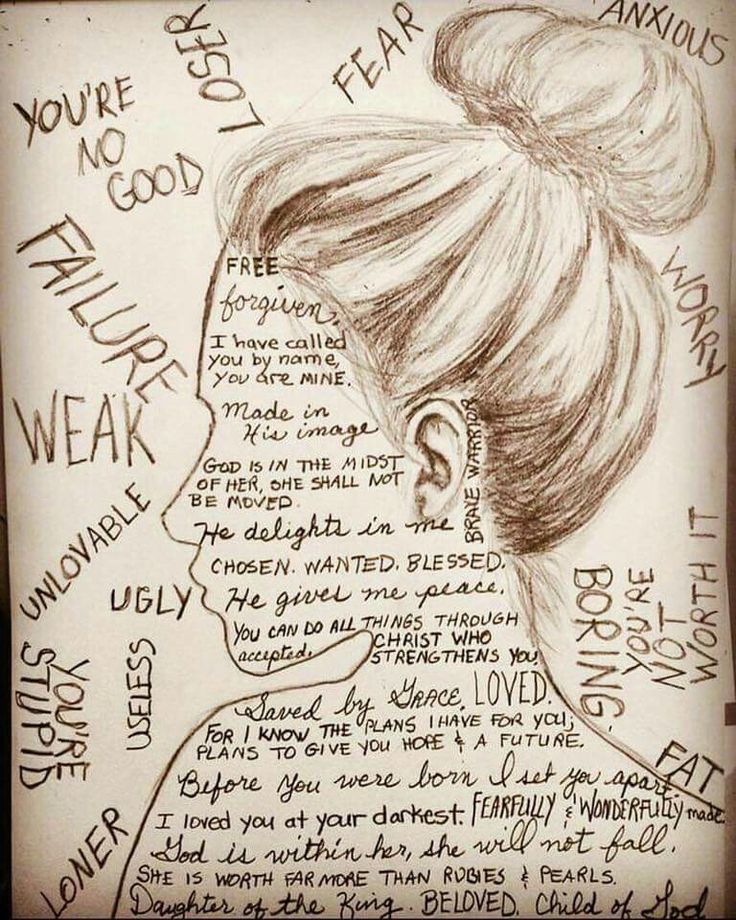 ANXIOUS
FEAR
LOSER
YOU'RE
NO
GOOD
FAILURE
WEAK
UNLOVABLE
UGLY
USELESS
YOU'RE
STUPID
LONER
WORRY
YOU'RE
NOT
WORTH IT
BORING
FAT
FREE
forgiven.
I have called
you by name,
you are MINE.
Made in
His image
GOD IS IN THE MIDST
OF HER, SHE SHALL NOT
BE MOVED.
BRAVE WARRIOR
He delights in me
CHOSEN. WANTED. BLESSED.
He gives me peace.
YOU CAN DO ALL THINGS THROUGH
CHRIST WHO
accepted. STRENGTHENS YOU.
Saved by GRACE. LOVED.
FOR I KNOW THE PLANS I HAVE FOR YOU;
PLANS TO GIVE YOU HOPE & A FUTURE.
Before you were born I set you apart.
I loved you at your darkest. FEARFULLY & WONDERFULLY made
God is within her, she will not fall.
SHE IS WORTH FAR MORE THAN RUBIES & PEARLS.
Daughter of the King. BELOVED. Child of God